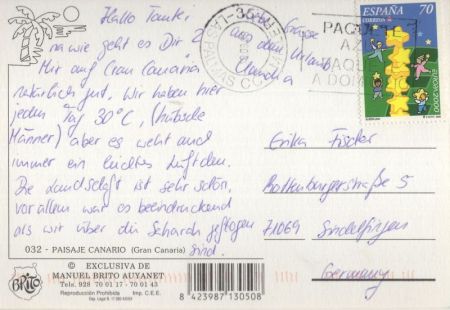 Hallo Tantes
na wie geht es Dir?
Mir auf Gran Canaria
natürlich gut, wir haben hier
jeden Tag 30°C, (hübsche
Männer) aber es weht auch
immer ein leichtes Lüftchen.
Die Landschaft ist sehr schön,
vor allem war es beeindruckend
als wir über die Sahara geflogen
sind.
Grüsse
aus dem Urlaub
Claudia
032 - PAISAJE CANARIO (Gran Canaria)
© EXCLUSIVA DE
MANUEL BRITO AUYANET
Telfs. 928 70 01 17 - 70 01 30
Reproducción Prohibida Imp. C.E.E.
BRITO
8 423987 130508
LAS PALMAS
PAQUETE
AZUL
PAQUE
A DOMI
ESPAÑA 70
CORREOS
EUROPA 2000
Erika Fischer
Rottenburgerstraße 5
71069 Sindelfingen
Germany